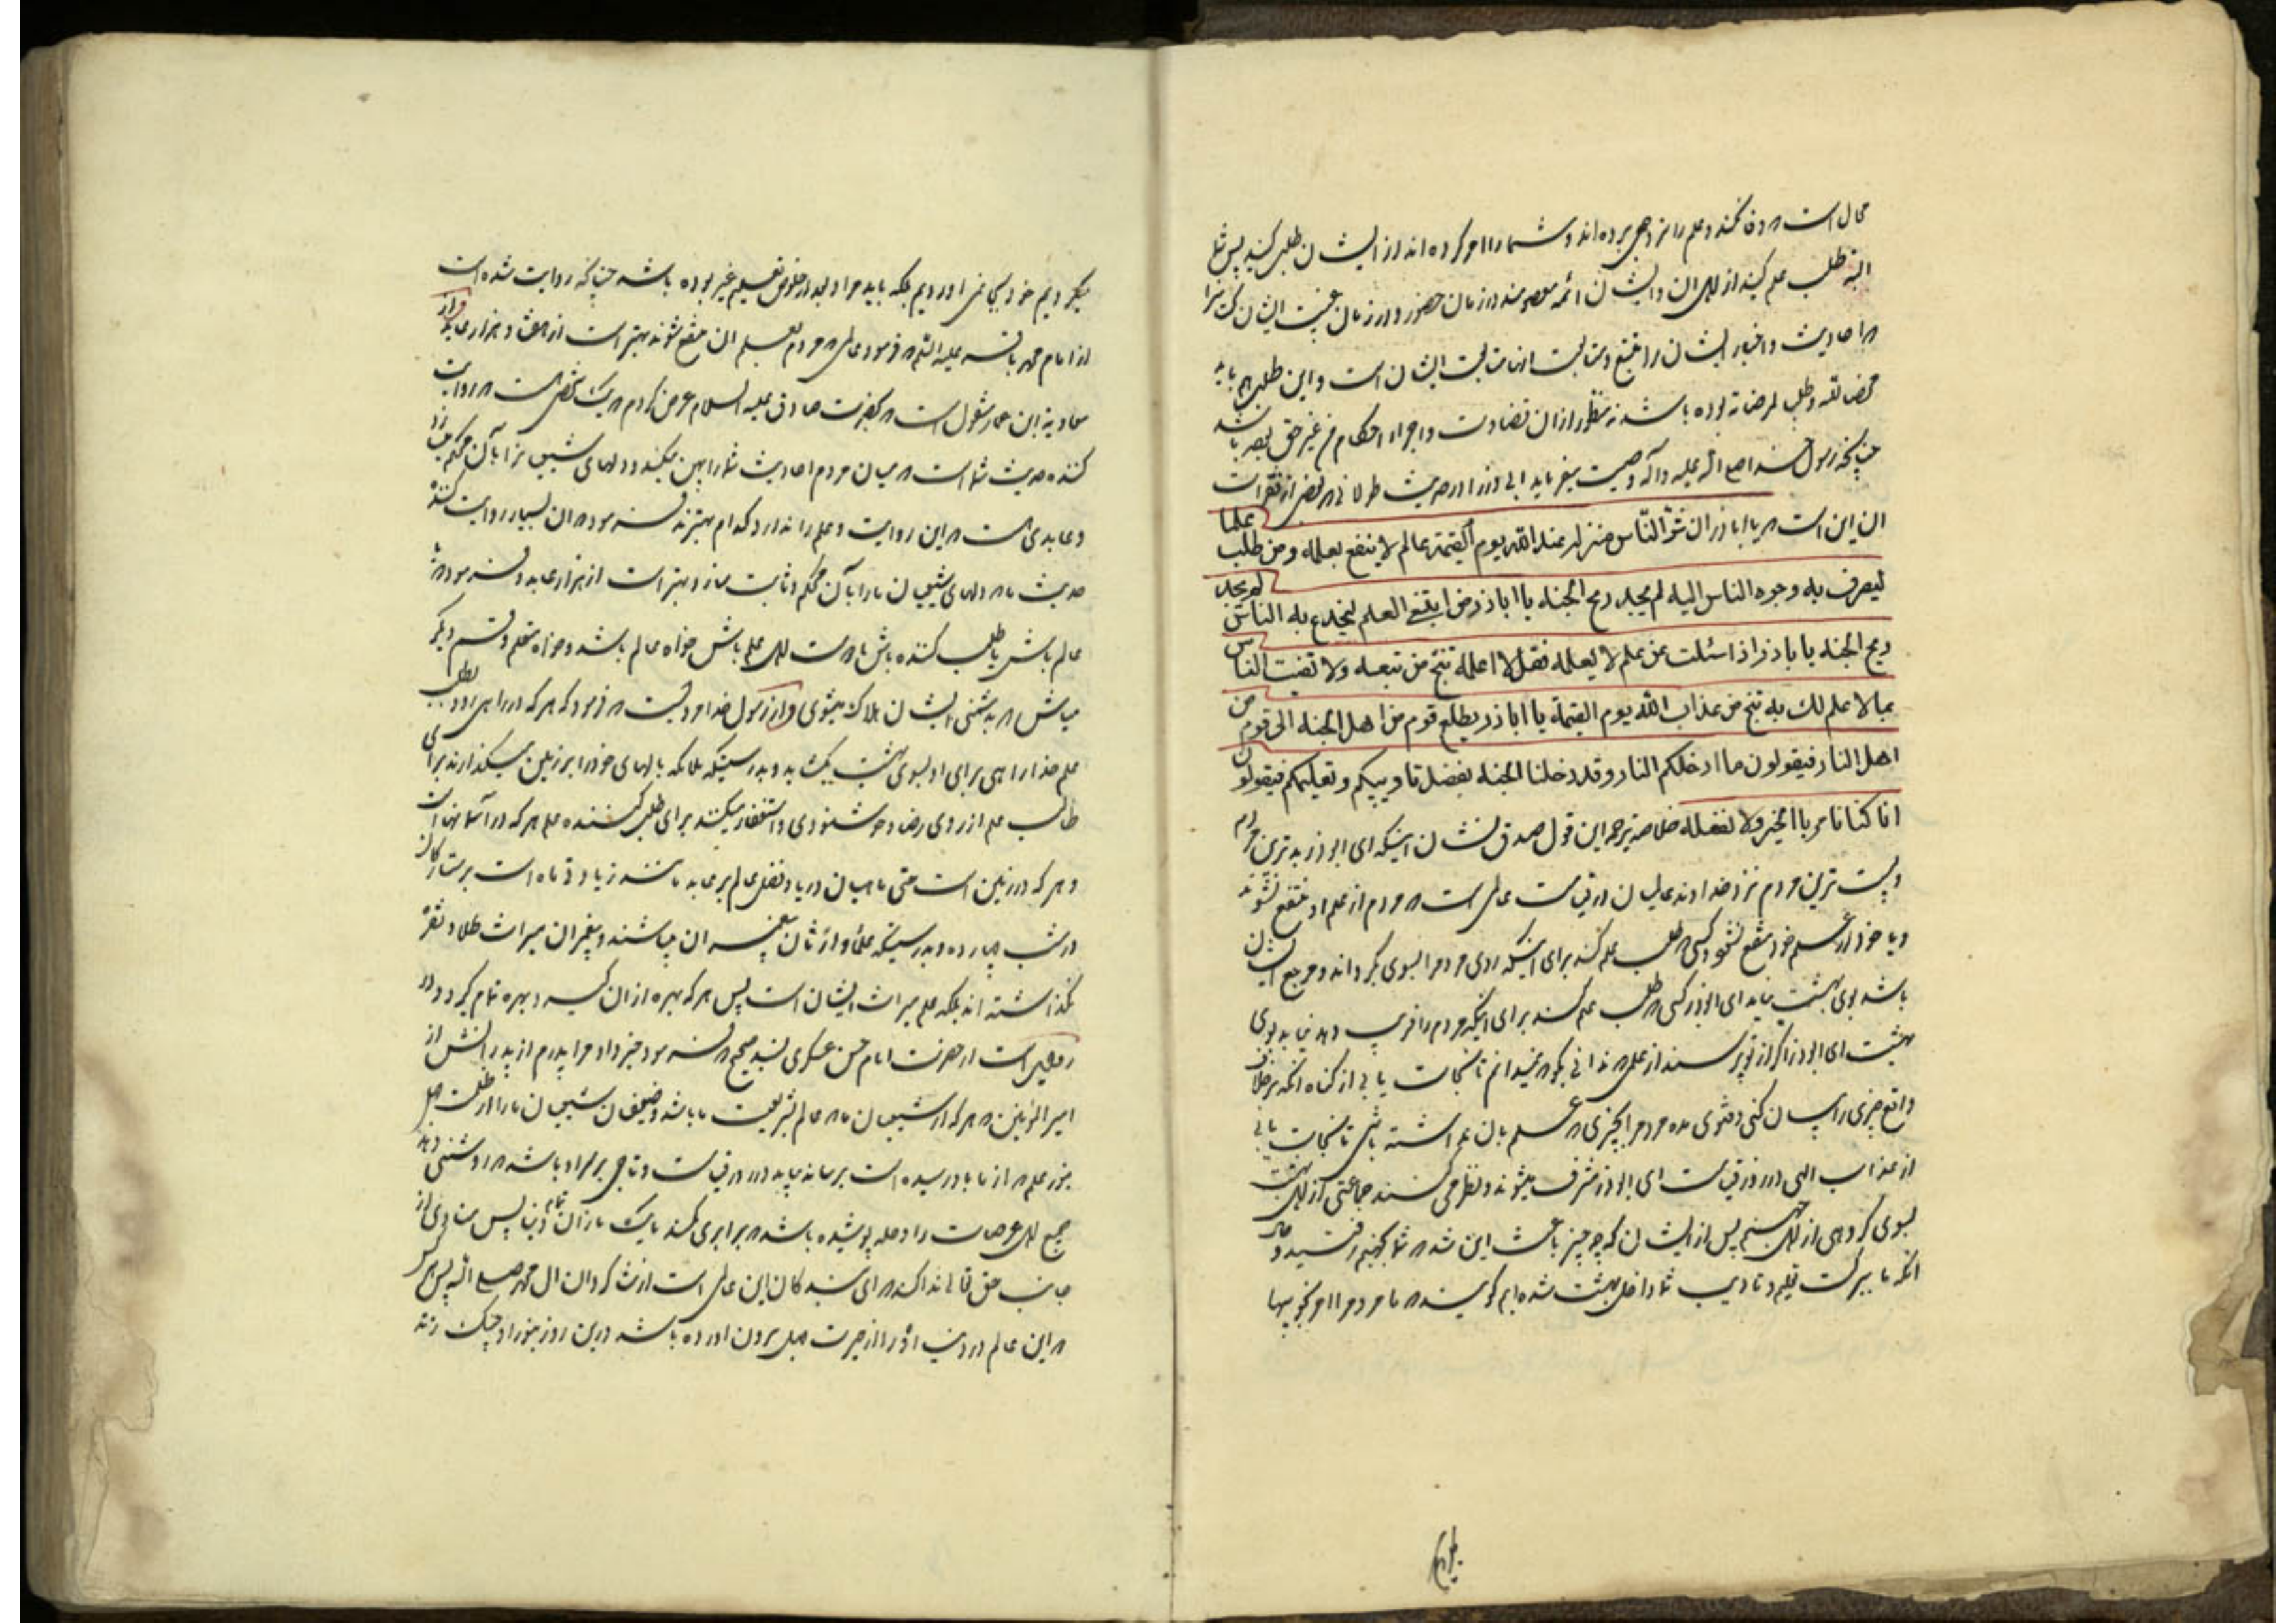 محال است که وفا نکند و علم را نزد جمعی برده اند و شما را امر کرده اند از ایشان طلب کنید پس شما
البته طلب علم کنید از اهل آن و ایشان ائمه معصومند در زمان حضور و در زمان غیبت ایشان
که احادیث و اخبار ایشان را تتبع و متابعت ایشان است و این طلب هم باید
محض لله و طلب لمرضاته بوده باشد نه منظور از ان قضاوت و اجراء احکام من غیر حق
چنانچه رسول خدا صلی الله علیه و آله وصیت میفرماید ابی ذر را در حدیث طولانی که بعض از فقرات
ان این است که یا اباذر ان شر الناس منزلة عند الله یوم القیمة عالم لا ینتفع بعلمه و من طلب علما
لیصرف به وجوه الناس الیه لم یجد ریح الجنه یا اباذر من ابتغی العلم لیخدع به الناس لم یجد
ریح الجنه یا اباذر اذا سئلت عن علم لا تعلمه فقل لا اعلمه تنج من تبعته ولا تفت الناس
بما لا علم لك به تنج من عذاب الله یوم القیمة یا اباذر یطلع قوم من اهل الجنه الی قوم من
اهل النار فیقولون ما ادخلکم النار و قد دخلنا الجنه بفضل تادیبکم و تعلیمکم فیقولون
انا کنا نامر بالخیر ولا نفعله خلاصه ترجمه این قول صدق نشان اینکه ای ابوذر بدترین مردم
و پست ترین مردم نزد خداوند عالمیان در قیامت عالمی است که مردم از علم او منتفع نشوند
و یا خود از علم خود منتفع نشود و کسی که طلب علم کند برای اینکه روی مردم را بسوی خود گرداند و مرجع ایشان
باشد بوی بهشت نیابد ای ابوذر کسی که طلب علم کند برای اینکه مردم را فریب دهد نیابد بوی
بهشت ای ابوذر اگر از تو پرسند از علمی که ندانی بگو که نمیدانم تا نجات یابی از گناه آنکه برخلاف
واقع چیزی را بیان کنی و فتوی مده مردم را بچیزی که علم بان نداشته باشی تا نجات یابی
از عذاب الهی در روز قیامت ای ابوذر مشرف میشوند و نظر می کنند جماعتی از اهل بهشت
بسوی گروهی از اهل جهنم پس از ایشان که چه چیز باعث این شد که شما بجهنم رفتید و حال
آنکه ما ببرکت تعلیم و تادیب شما داخل بهشت شده ایم گویند که ما مردم را امر بخوبیها
میکردیم خود بجا نمی اوردیم بلکه باید مراد تعلیم غیر بوده باشد چنانچه روایت شده است
از امام محمد باقر علیه السلم که فرمود عالمی که مردم بعلم ان منتفع شوند بهتر است از هفتاد هزار عابد و از
معاویة ابن عمار منقول است که بحضرت صادق علیه السلام عرض کردم که یک شخصی هست که روایت
کننده حدیث شما است که میان مردم احادیث شما را پهن میکند و دلهای شیعیان شما را بآن محکم میسازد
و عابدی هست که این روایت و علم را ندارد کدام بهترند فرمود که ان بسیار روایت کننده
حدیث ما که دلهای شیعیان ما را بآن محکم و ثابت سازد بهتر است از هزار عابد و فرمود که
عالم باش یا طلب کننده باش یا دوست اهل علم باش خواه عالم باشد و خواه متعلم و قسم دیگر
مباش که بدشمنی ایشان هلاک میشوی و از رسول خدا مرویست که فرمود که هر که در راهی رود بطلب
علم خدا راهی برای او بسوی بهشت بگشاید و بدرستیکه ملائکه بالهای خود را بر زمین میگذارند برای
طالب علم از روی رضا و خوشنودی و استغفار میکنند برای طلب کننده علم هر که در آسمانها است
و هر که در زمین است حتی ماهیان دریا و فضل عالم بر عابد مانند زیادتی ماه است بر ستارگان
در شب چهارده و بدرستیکه علما وارثان پیغمبران میباشند و پیغمبران میراث طلا و نقره
نگذاشته اند بلکه علم میراث ایشان است پس هر که بهره از ان گیرد بهره تمام گیرد و در
روایتی است از حضرت امام حسن عسکری بسند صحیح که فرمود خبر داد مرا پدرم از پدرانش از
امیر المومنین که هر که از شیعیان ما که عالم بشریعت ما باشد و ضعیفان شیعیان ما را از ظلمت جهل
بنور علم که از ما باو رسیده است برساند بیاید در روز قیامت و تاجی بر سر او باشد که روشنی دهد
جمیع اهل عرصات را و حله پوشیده باشد که برابری نکند بیک تار آن تمام دنیا پس منادی از
جانب حق تعالی ندا کند که ای بندگان این عالمی است از شاگردان ال محمد صلی الله پس هر کس
که این عالم در دنیا او را از حیرت جهل بیرون اورده باشد درین روز بنور او چنگ زند